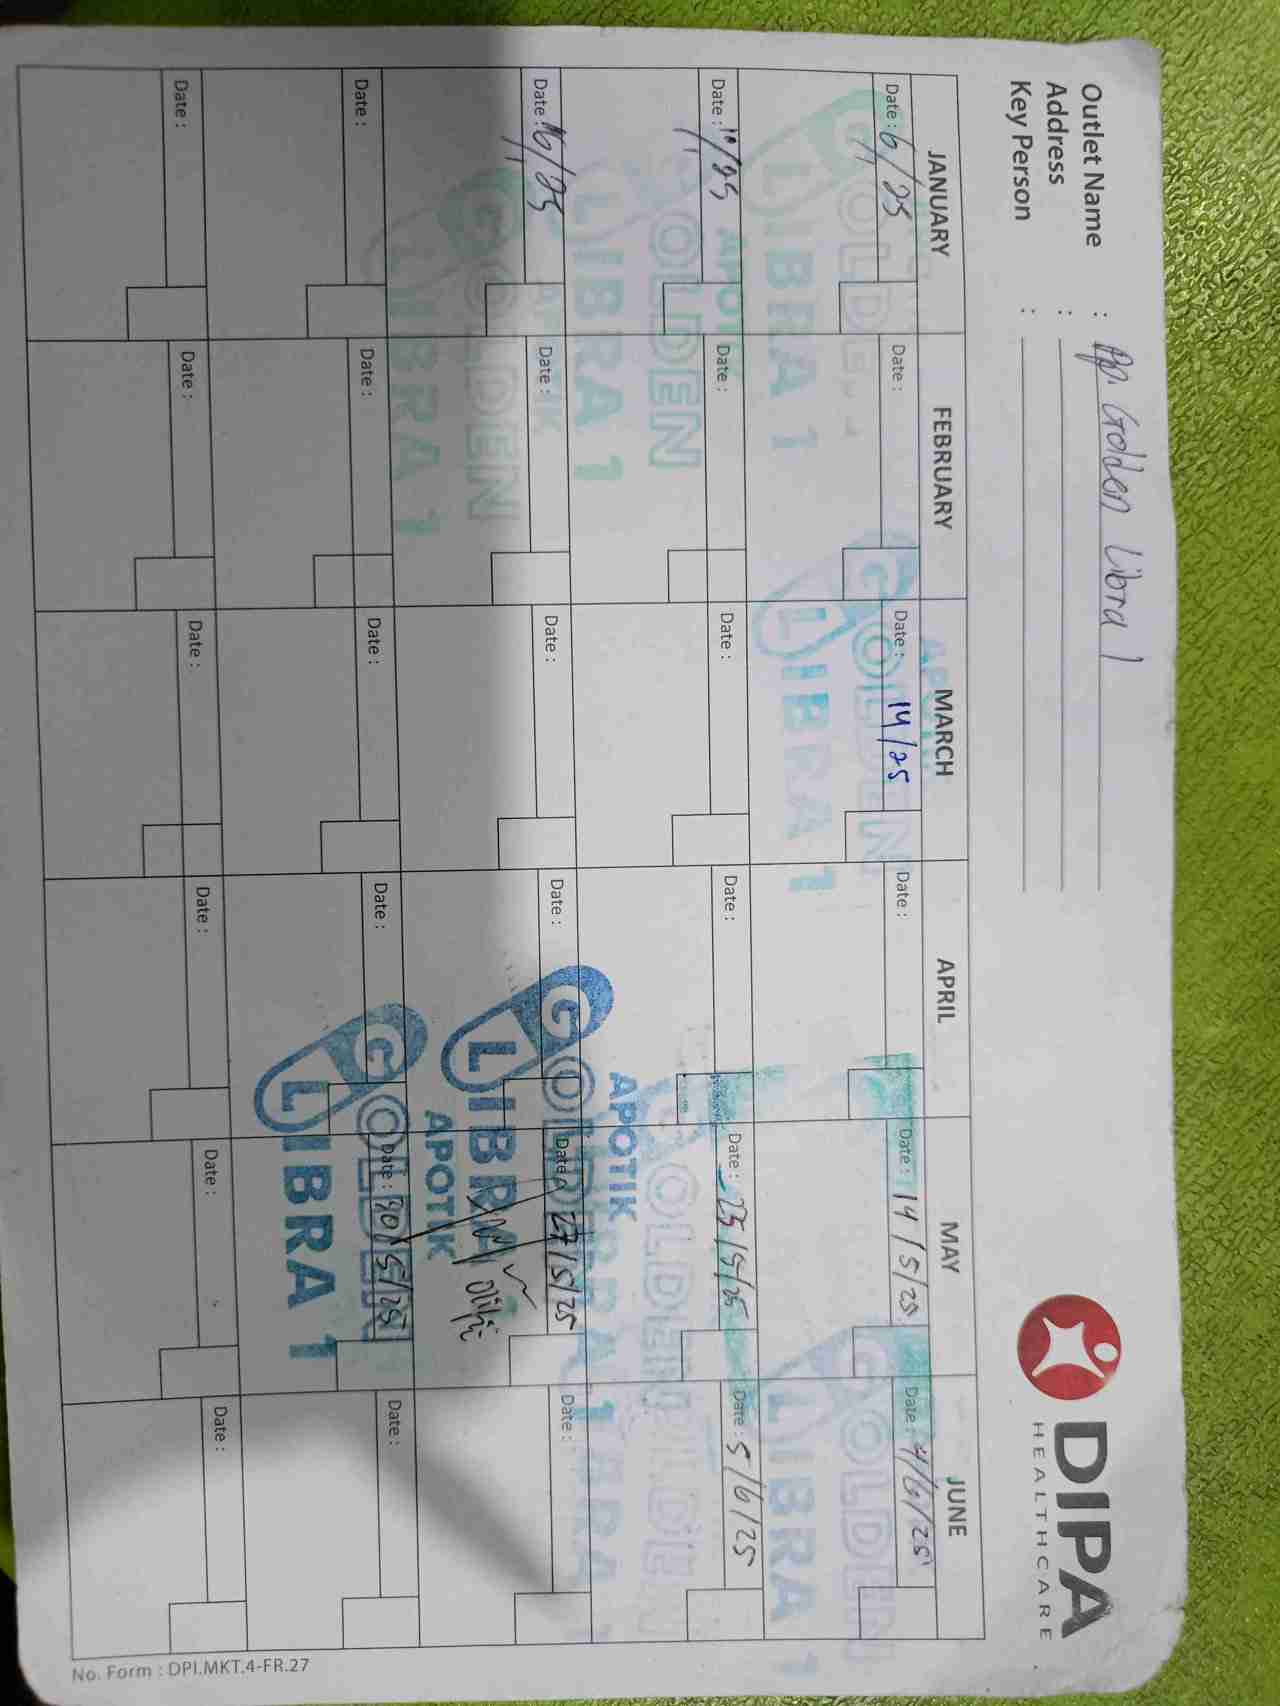 Outlet Name : Ap. Golden Libra 1
Address :
Key Person :
DIPA
HEALTHCARE
JANUARY FEBRUARY MARCH APRIL MAY JUNE
Date : 6/1/25 Date : Date : 14/25 Date : Date : 14/5/25 Date : 4/6/25
Date : 10/1/25 Date : Date : Date : Date : 23/5/25 Date : 5/6/25
Date : 16/1/25 Date : Date : Date : Date : 27/5/25 Date :
Date : Date : Date : Date : Date : 30/5/25 Date :
Date : Date : Date : Date : Date : Date :
APOTIK
GOLDEN
LIBRA 1
APOTIK
GOLDEN
LIBRA 1
APOTIK
GOLDEN
LIBRA 1
APOTIK
GOLDEN
LIBRA 1
APOTIK
GOLDEN
LIBRA 1
GOLDEN
LIBRA 1
GOLDEN
LIBRA 1
No. Form : DPI.MKT.4-FR.27